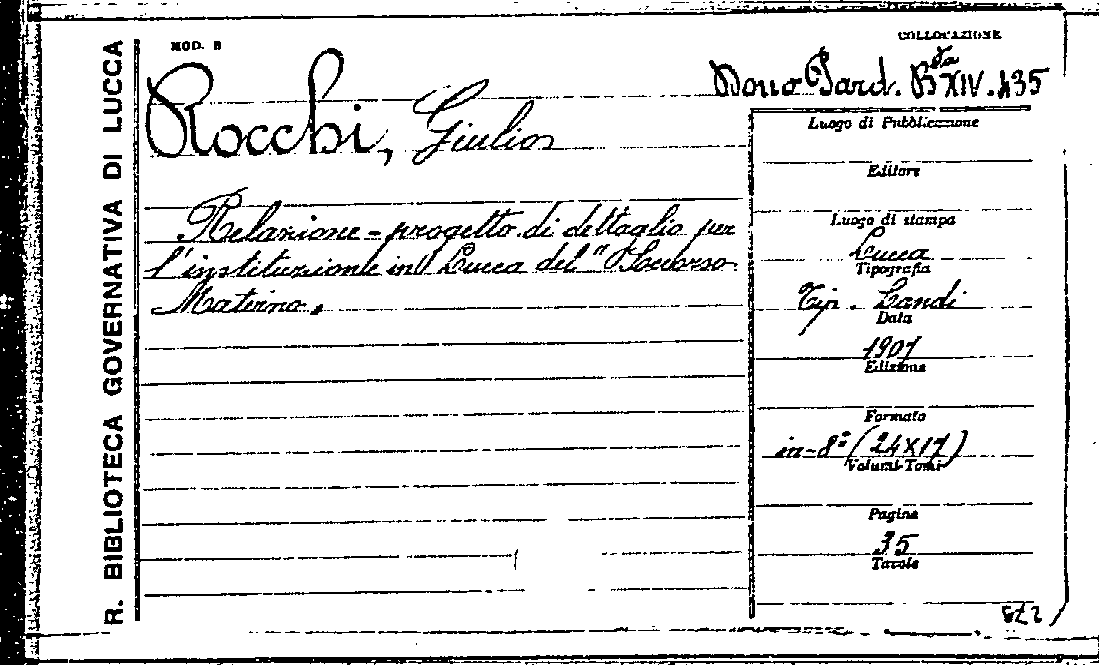 R. BIBLIOTECA GOVERNATIVA DI LUCCA
MOD. B
COLLOCAZIONE
Dono Pard. Bta XIV. 135
Rocchi, Giulio
Relazione-progetto di dettaglio per
l'instituzione in Lucca del "Soccorso
Materno.
Luogo di Pubblicazione
Editore
Luogo di stampa
Lucca
Tipografia
Tip. Landi
Data
1901
Edizione
Formato
in-8° (24x17)
Volumi-Tomi
Pagine
35
Tavole